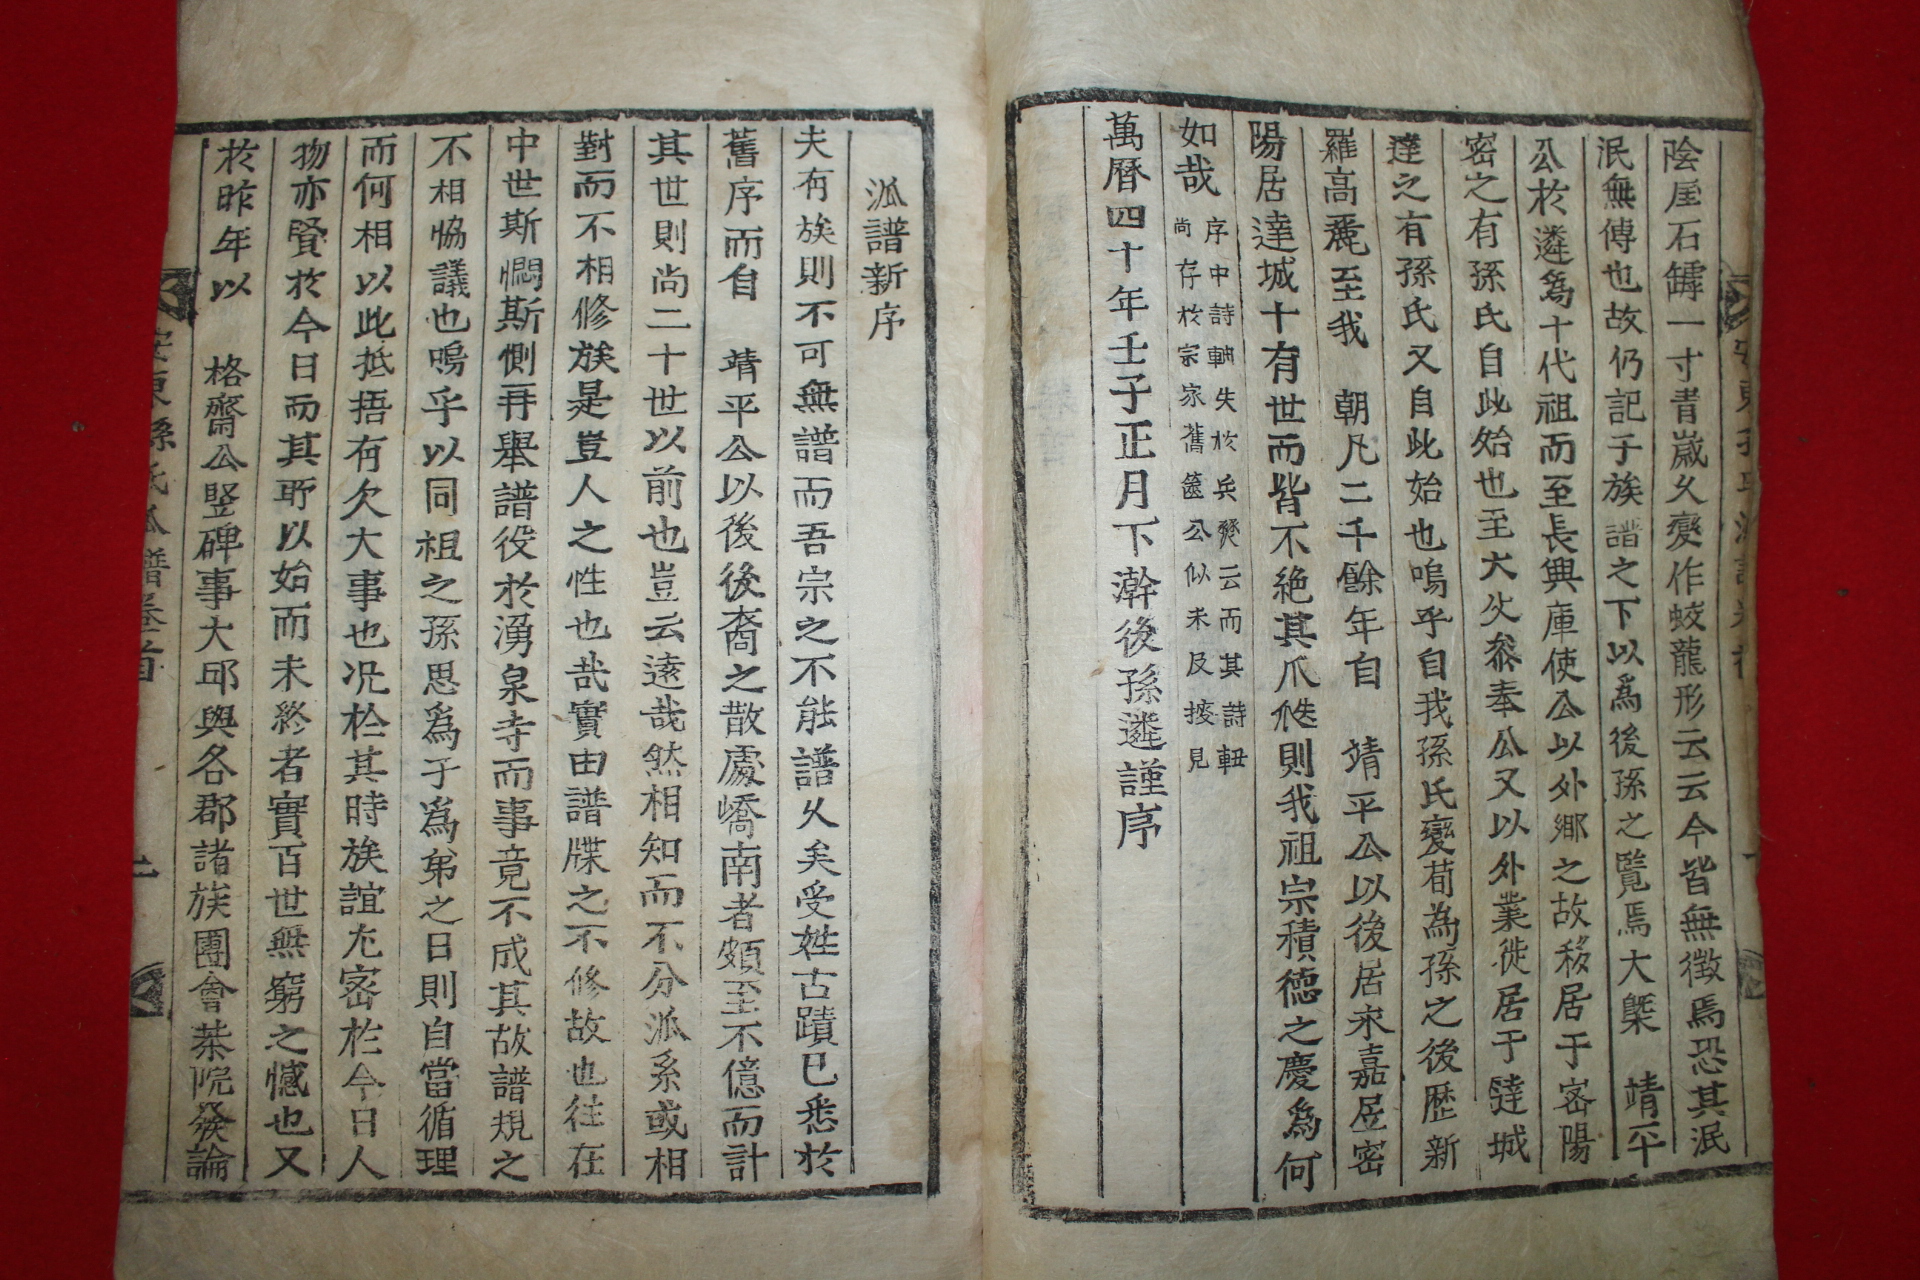 陰崖石罅一寸青嵗久變作蛟龍形云云今皆無徵焉恐其泯
泯無傳也故仍記于族譜之下以爲後孫之覧焉大槩 靖平
公於遴爲十代祖而至長興庫使公以外鄉之故移居于密陽
密之有孫氏自此始也至大父叅奉公又以外業徙居于達城
達之有孫氏又自此始也嗚乎自我孫氏變荀為孫之後歷新
羅高麗至我 朝凡二千餘年自 靖平公以後居宋嘉居密
陽居達城十有世而皆不絶其爪瓞則我祖宗積德之慶爲何
如哉 序中詩軸失於兵燹云而其詩軸
尚存於宗家舊篋公似未及披見
萬曆四十年壬子正月下澣後孫遴謹序
派譜新序
夫有族則不可無譜而吾宗之不能譜久矣受姓古蹟已悉於
舊序而自 靖平公以後後裔之散處嶠南者頗至不億而計
其世則尚二十世以前也豈云遠哉然相知而不分派系或相
對而不相修族是豈人之性也哉實由譜牒之不修故也往在
中世斯憫斯惻再舉譜役於湧泉寺而事竟不成其故譜規之
不相恊議也嗚乎以同祖之孫思爲子爲弟之日則自當循理
而何相以此抵捂有欠大事也况於其時族誼尤密於今日人
物亦賢於今日而其所以始而未終者實百世無窮之憾也又
於昨年以 格齋公竪碑事大邱與各郡諸族團會葉院發論
安東孫氏派譜卷首
二